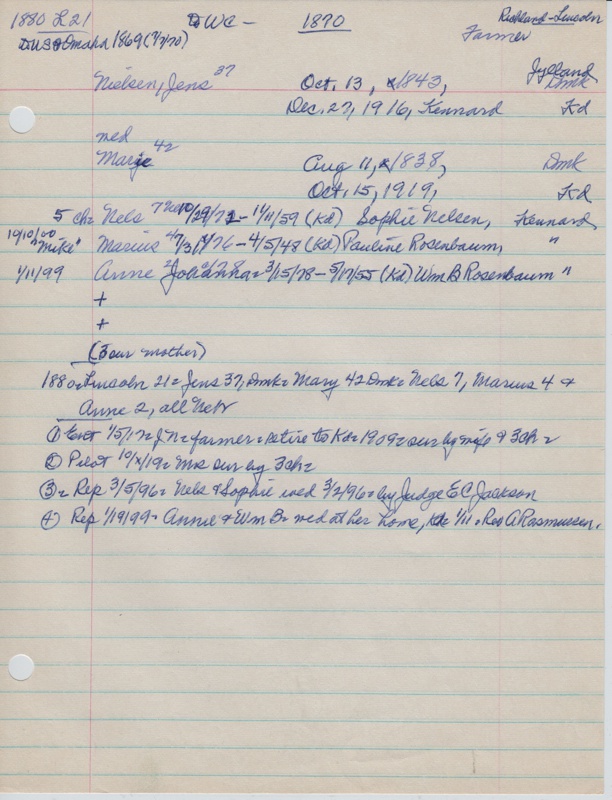 1880 L21 WC - 1870 Richland-Lincoln
Omaha 1869 (7/70) Farmer
Nielsen, Jens 37 Oct. 13, 1843, Jylland Dmk
Dec. 27, 1916, Kennard Kd
med
Marie 42 Aug 11, 1838, Dmk
Oct. 15, 1919, Kd
5 ch= Nels 7 Ne 10/29/72 - 11/11/59 (Kd) Sophie Nelsen, Kennard
10/10/00 "Mike" Marius 4 /76 - 4/5/48 (Kd) Pauline Rosenbaum, "
1/11/99 Anne 2 Johanna= 3/15/78 - 5/17/55 (Kd) Wm B Rosenbaum "
+
+
(3 sur mother)
1880= Lincoln 21= Jens 37, Dmk= Mary 42 Dmk= Nels 7, Marius 4 +
Anne 2, all Nebr
① Ent 1/5/17= JN= farmer= retire to Kd= 1909= sur by wife & 3 ch=
② Pilot 10/ /19= Mrs sur by 3 ch=
③= Rep 3/5/96= Nels & Sophie wed 3/2/96= by Judge E C Jackson
④ Rep 1/19/99= Annie & Wm B= wed at her home, 1/11= Rev A Rasmussen.